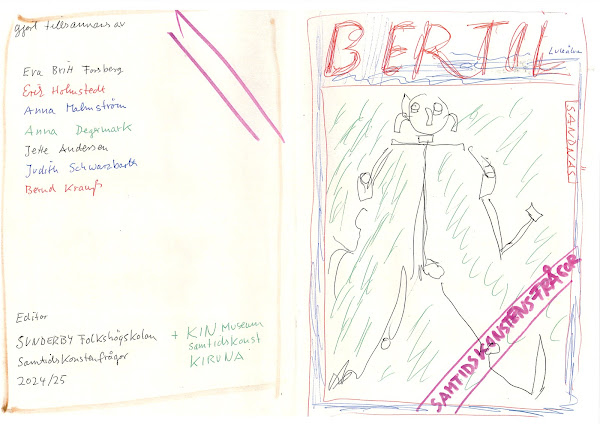 gjort tillsammans av
Eva Britt Forsberg
Erik Holmstedt
Anna Malmström
Anna Degermark
Jette Andersen
Judith Schwarzbart
Bernd Krauß
Editor
SUNDERBY Folkhögskolan
Samtidskonstenfrågor
2024/25
+ KIN Museum
samtidskonst
KIRUNA
BERTIL
SANDNÄS
SAMTIDSKONSTENS FRÅGOR